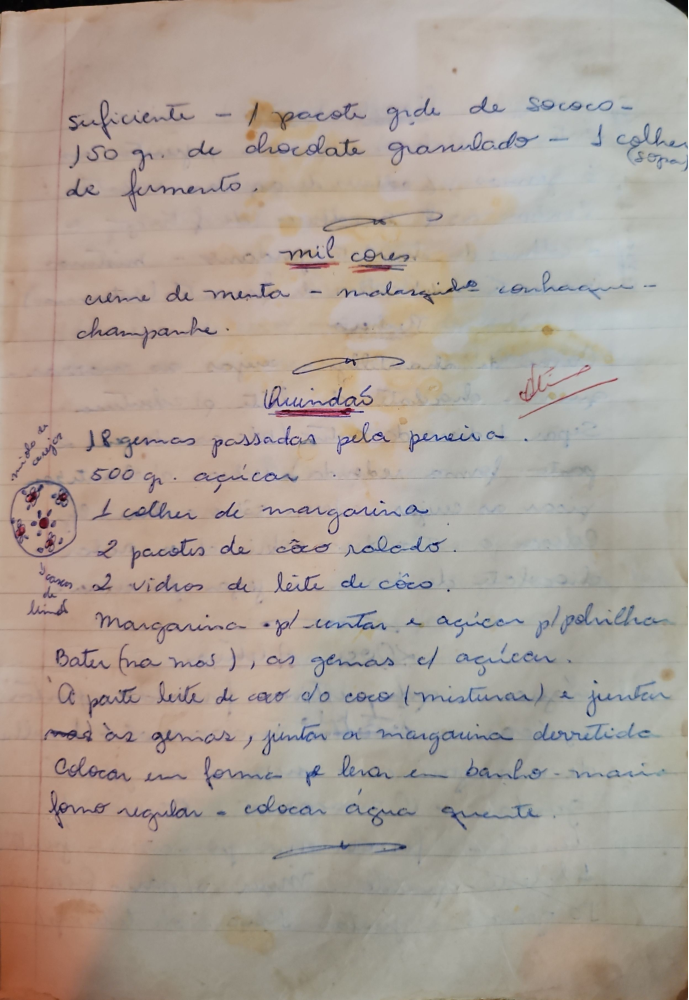 suficiente - 1 pacote gde de sococo -
150 gr. de chocolate granulado - 1 colher
(sopa)
de fermento.
mil cores
creme de menta - conhaque -
champanhe.
Quindão
18 gemas passadas pela peneira.
500 gr. açúcar
1 colher de margarina
2 pacotes de côco ralado.
2 vidros de leite de côco.
miolo de
cerejas
de
Margarina p/ untar e açúcar p/ polvilhar
Bater (na mão), as gemas c/ açúcar.
À parte leite de coco c/o coco (misturar) e juntar
às gemas, juntar a margarina derretida
Colocar em forma e levar em banho-maria
forno regular - colocar água quente.